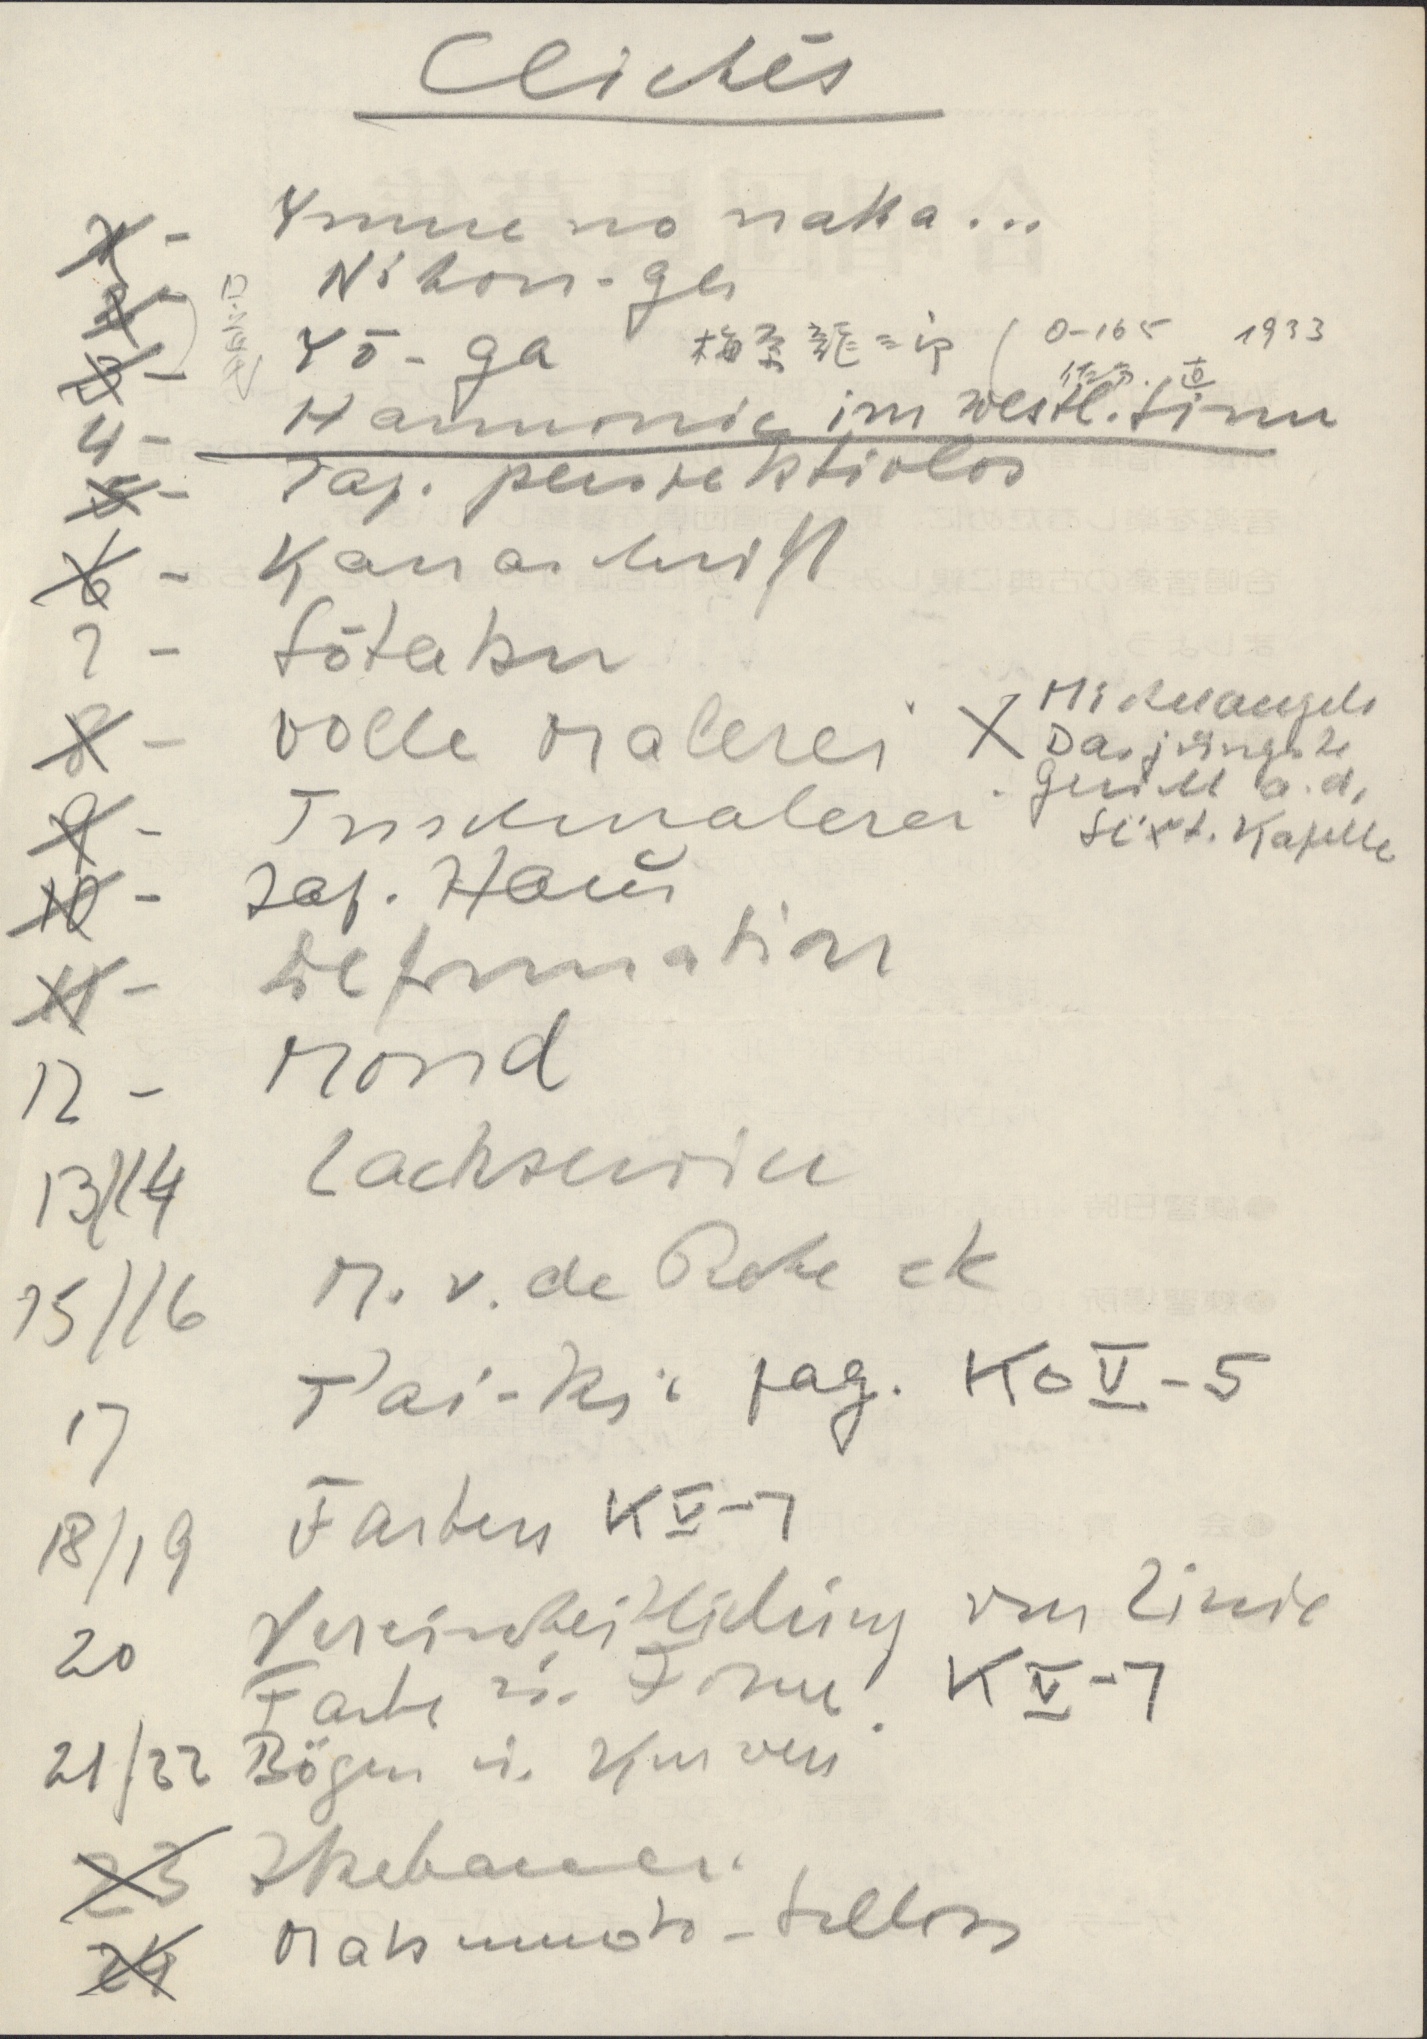 Clichés
1 - Yume no naka...
2 - Nihon-ga
3 - Yō-ga 梅原龍三郎 ( 0-165 1933
4 - Harmonie im westl. Sinn
5 - Jap. perspektivlos
6 - Kanaschrift
7 - Sōtaku
8 - volle Malerei X Michelangelo
Das jüngste
Gericht a.d.
Sixt. Kapelle
9 - Tuschmalerei
10 - Jap. Haus
11 - Deformation
12 - Mond
13/14 Lachservice
15/16 M. v. de
17 T'ai-ki: pag. Ko V-5
18/19 Farben K V-7
20 Vereinheitlichung von Linie
Farbe u. Form. K V-7
21/22 Bögen u. Kurven
23 Ikebana
24 Matsumoto-Schloss